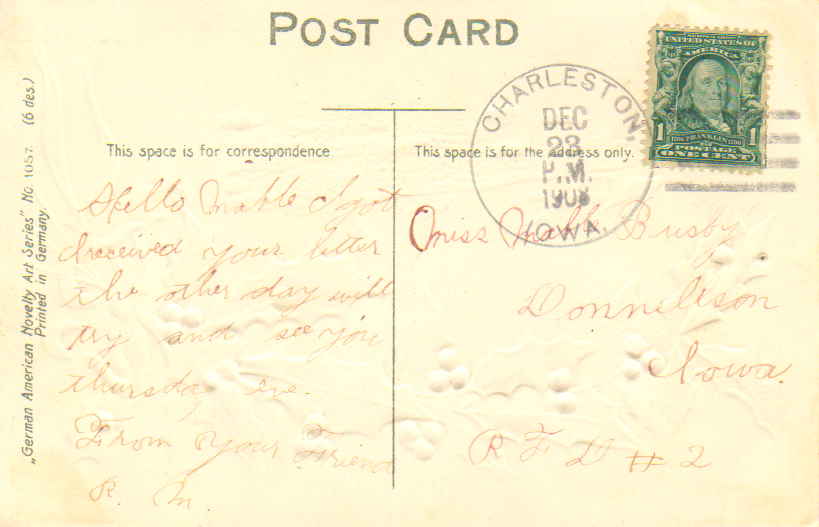 POST CARD
UNITED STATES OF
AMERICA
1 1
POSTAGE
ONE CENT
CHARLESTON,
DEC
23
P.M.
1908
IOWA.
This space is for correspondence.
This space is for the address only.
Hello Mable I got
received your letter
the other day will
try and see you
thursday eve.
From Your Friend
R. M.
Miss Mable Busby
Donnellson
Iowa.
R F D # 2
„German American Novelty Art Series" No. 1057. (6 des.)
Printed in Germany.